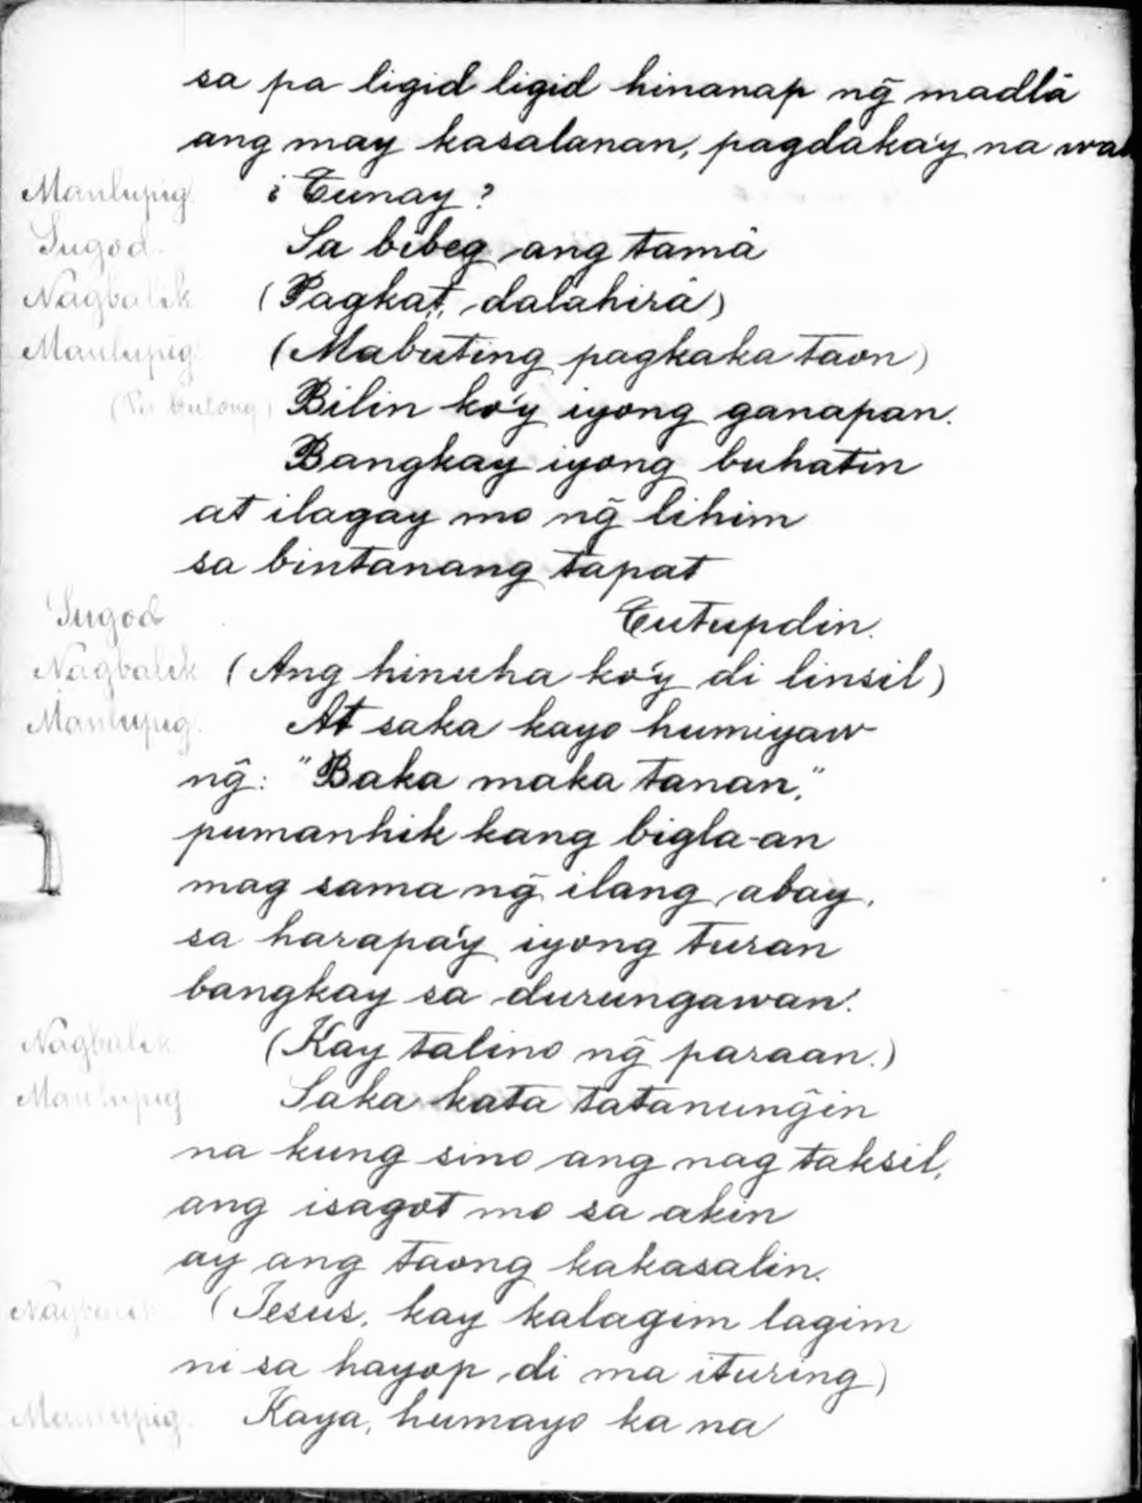 sa pa ligid ligid hinanap ng̃ madlâ
ang may kasalanan, pagdaka'y na wa
Manlupig. ¿Tunay?
Sugod. Sa bibeg ang tamâ
Nagbalik (Pagkat, dalahirâ)
Manlupig. (Mabuting pagkaka taon)
bulong) Bilin ko'y iyong ganapan.
Bangkay iyong buhatin
at ilagay mo ng̃ lihim
sa bintanang tapat
Sugod Tutupdin.
Nagbalik (Ang hinuha ko'y di linsil)
Manlupig. At saka kayo humiyaw
ng̃: "Baka maka tanan,"
pumanhik kang bigla-an
mag sama ng̃ ilang abay,
sa harapa'y iyong turan
bangkay sa durungawan!
Nagbalik (Kay talino ng̃ paraan.)
Manlupig Saka kata tatanung̃in
na kung sino ang nag taksil,
ang isagot mo sa akin
ay ang taong kakasalin.
Nagbalik (Jesus, kay kalagim lagim
ni sa hayop di ma ituring)
Manlupig. Kaya, humayo ka na